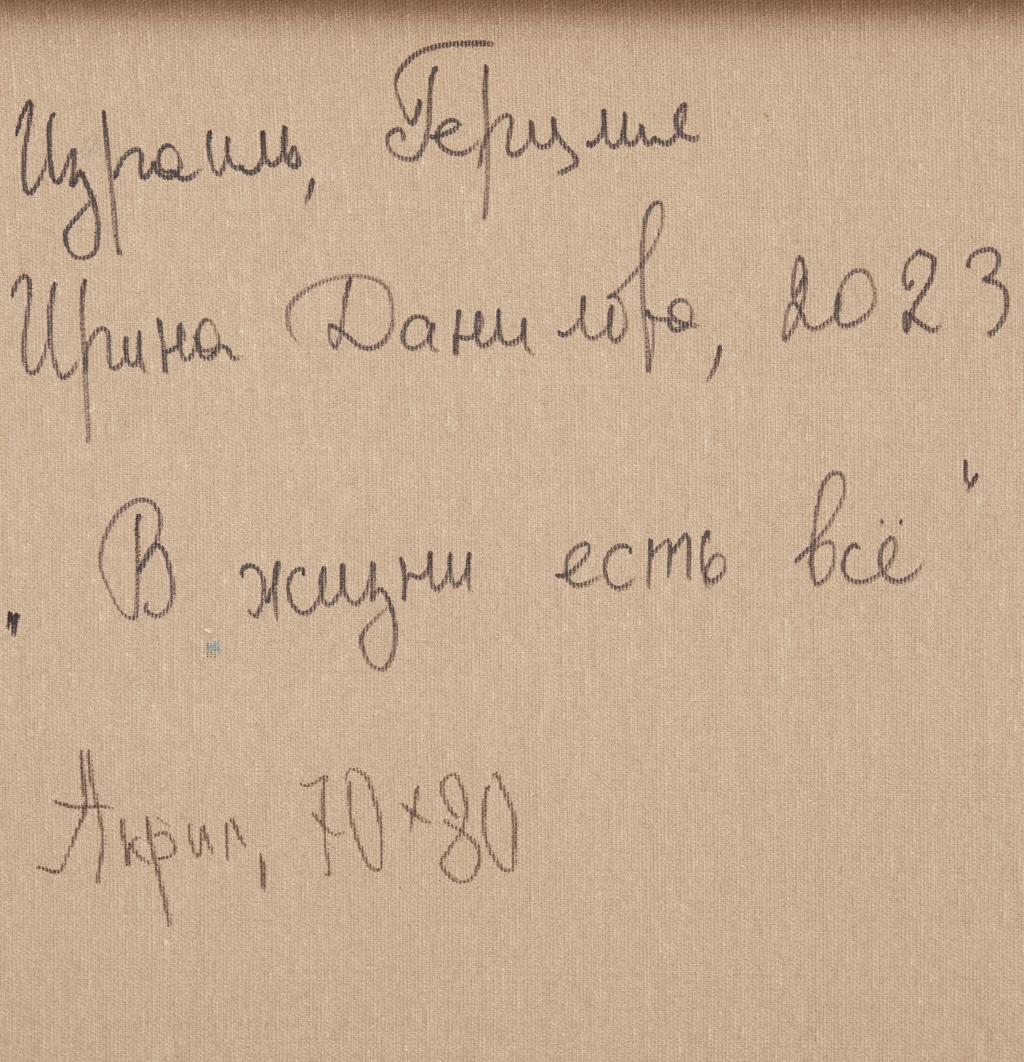 Израиль, Герцлия
Ирина Данилова, 2023
„ В жизни есть всё "
Акрил, 70×80